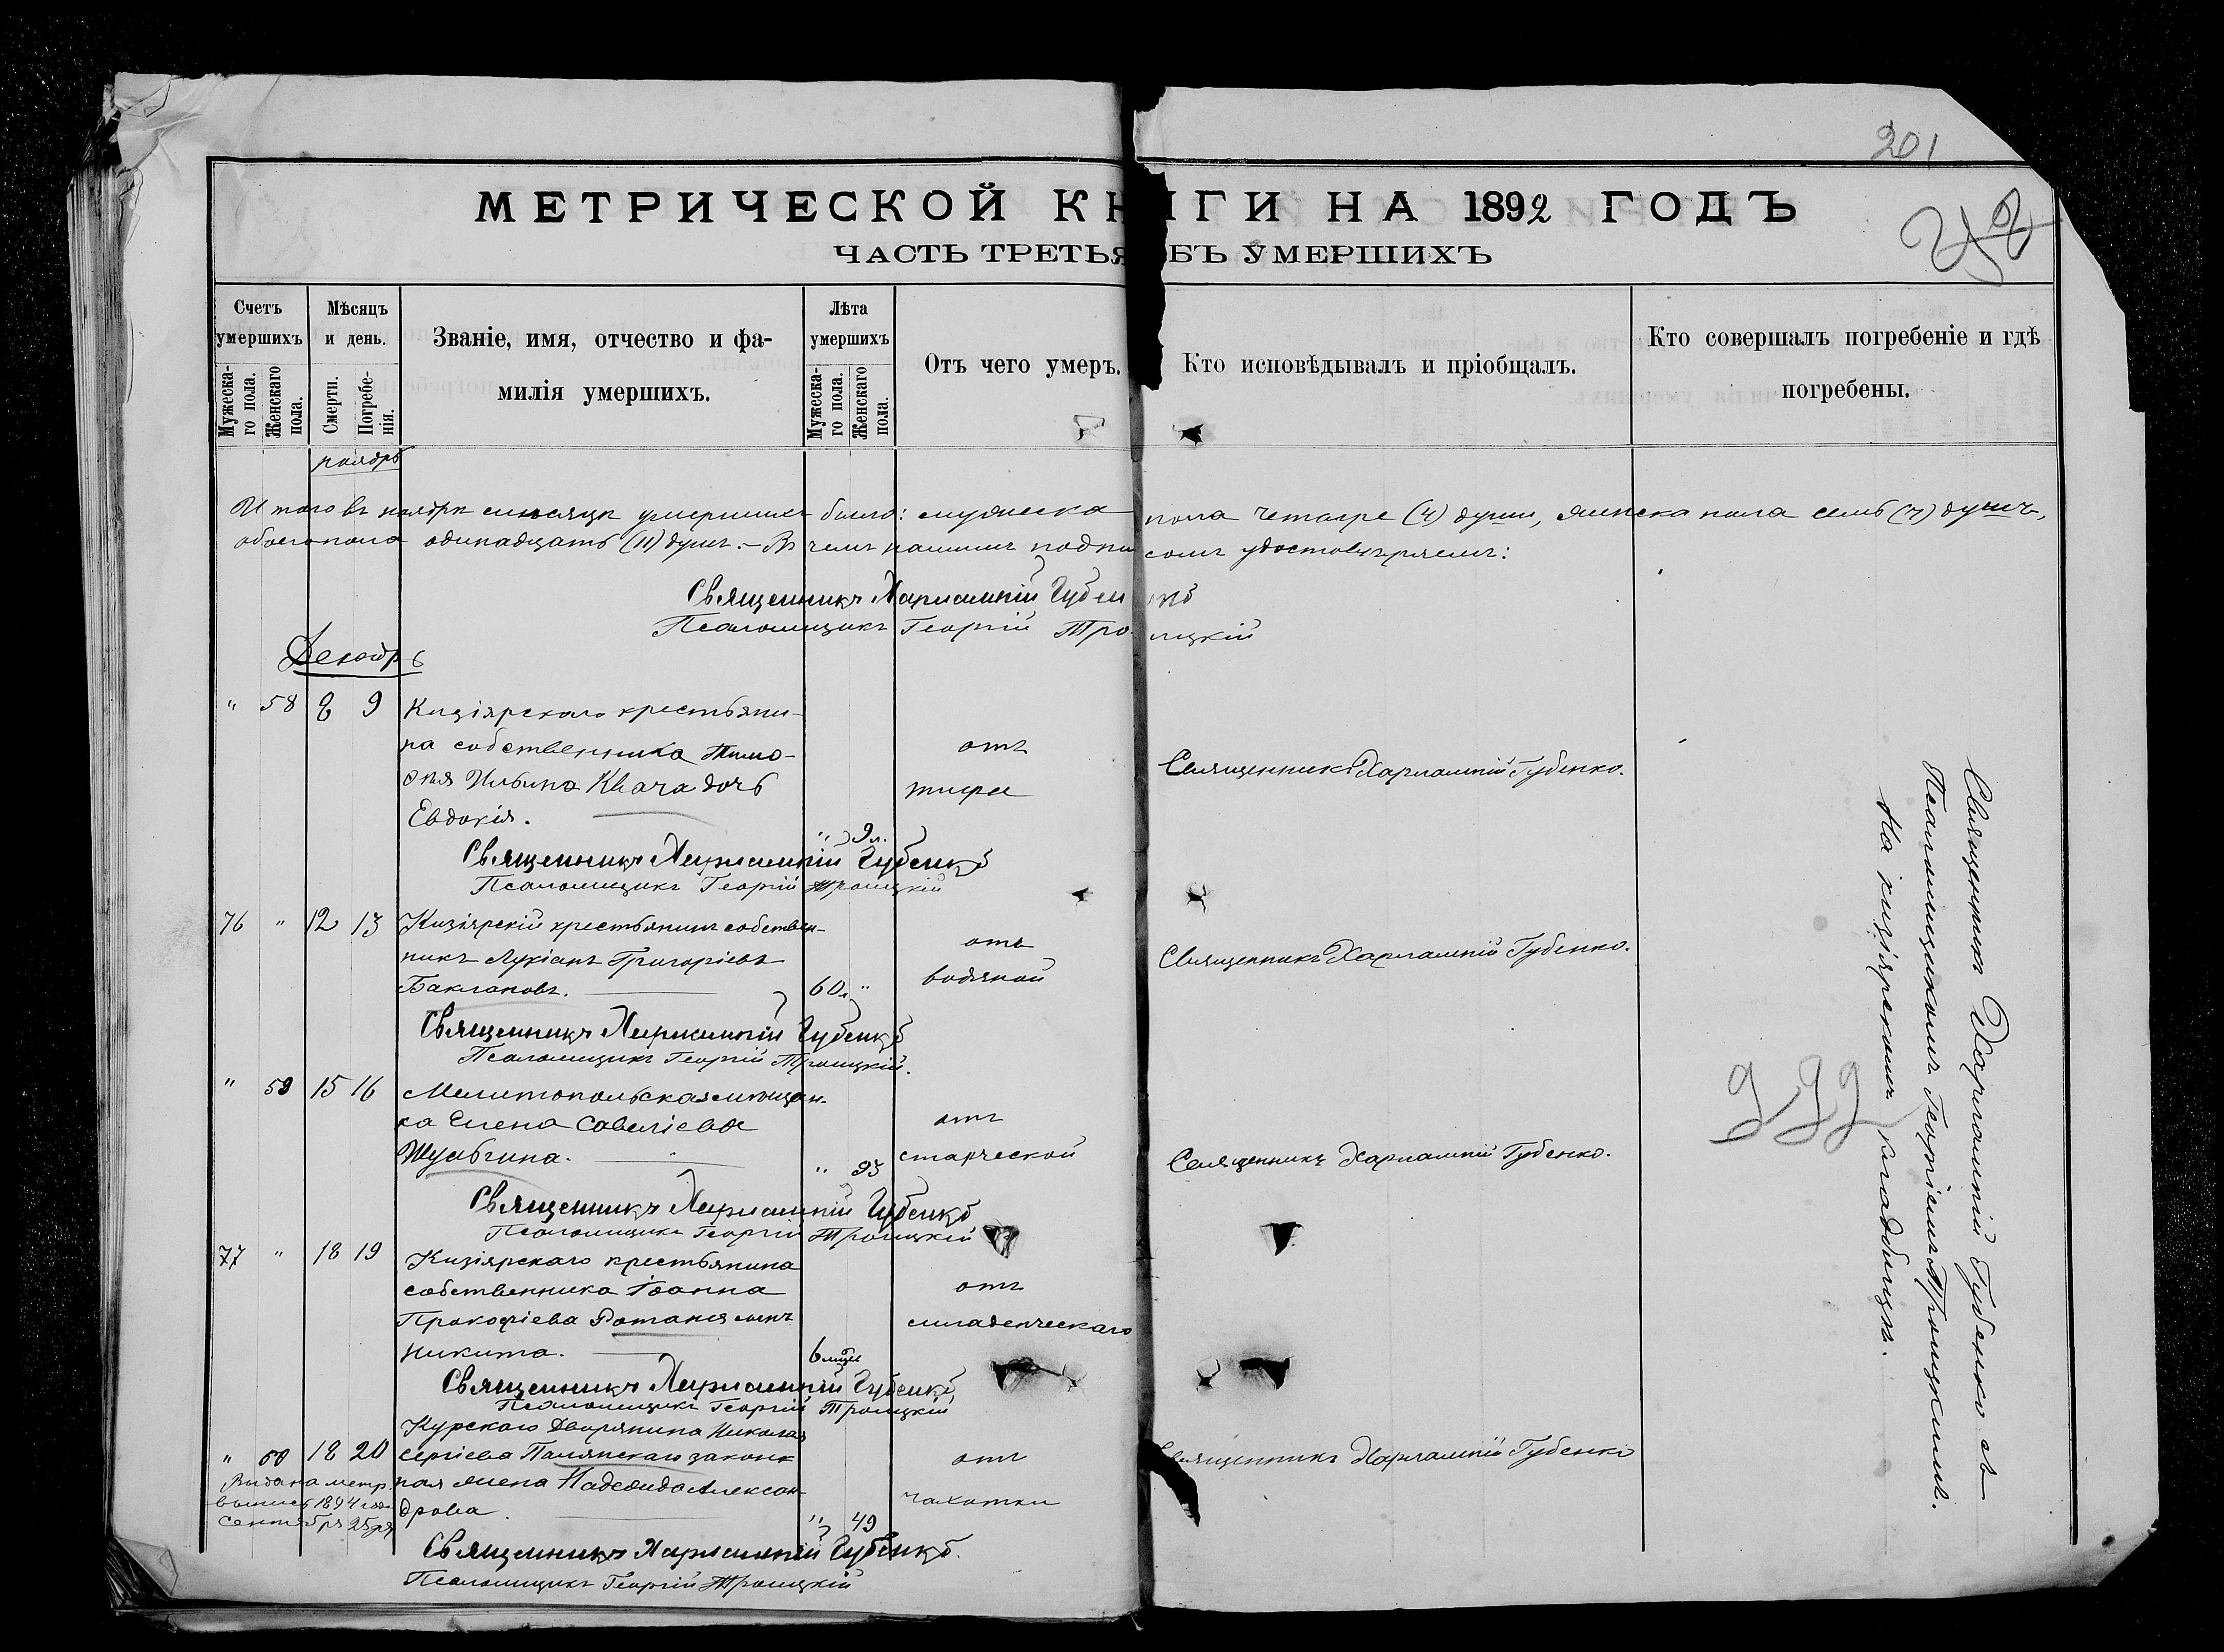 201
МЕТРИЧЕСКОЙ КНИГИ НА 1892 ГОДЪ
ЧАСТЬ ТРЕТЬЯ БЪ УМЕРШИХЪ
Счетъ умершихъ
Мужескаго пола.
Женскаго пола.
Мѣсяцъ и день.
Смерти.
Погребенія.
Званіе, имя, отчество и фа-
милія умершихъ.
Лѣта умершихъ
Мужескаго пола.
Женскаго пола.
Отъ чего умеръ.
Кто исповѣдывалъ и пріобщалъ.
Кто совершалъ погребеніе и гдѣ
погребены.
ноябрь
Итого въ ноябрѣ мѣсяцѣ умершихъ было: мужеска пола четыре (4) души, женска пола семь (7) душъ,
обоего пола одинадцать (11) душъ. – Въ чемъ нашимъ подписомъ удостовѣряемъ:
Священникъ Харлампій Губенко
Псаломщикъ Георгій Троицкій
Декабрь
" 58 8 9 Кизіярскаго крестьяни-
на собственника Тимо- отъ
ѳея Ильина Квача дочь тифа Священникъ Харлампій Губенко.
Евдокія. " 9 л.
Священникъ Харлампій Губенко
Псаломщикъ Георгій Троицкій
76 " 12 13 Кизіярскій крестьянинъ собствен-
никъ Лукіанъ Григоріевъ отъ Священникъ Харлампій Губенко.
Баклановъ. 60 л. " водяной
Священникъ Харлампій Губенко
Псаломщикъ Георгій Троицкій.
" 59 15 16 Мелитопольская мѣщан-
ка Елена Савеліева отъ
Шульгина. " 93 старческой Священникъ Харлампій Губенко.
Священникъ Харлампій Губенко
Псаломщикъ Георгій Троицкій
77 " 18 19 Кизіярскаго крестьянина
собственника Іоанна отъ
Прокофіева Ротаня сынъ младенческаго
Никита. 6 мцъ
Священникъ Харлампій Губенко
Псаломщикъ Георгій Троицкій
Курскаго Дворянина Николая
" 60 18 20 Сергіева законн отъ Священникъ Харлампій Губенко
ная жена Надежда Алексан- чахотки
дрова. " 49
Выдана метр.
выпись 1894 года
Сентября 25 дня
Священникъ Харлампій Губенко.
Псаломщикъ Георгій Троицкій
Священникъ Харлампій Губенко съ
Псаломщикомъ Георгіемъ Троицкимъ.
На кизіярскомъ кладбищѣ.